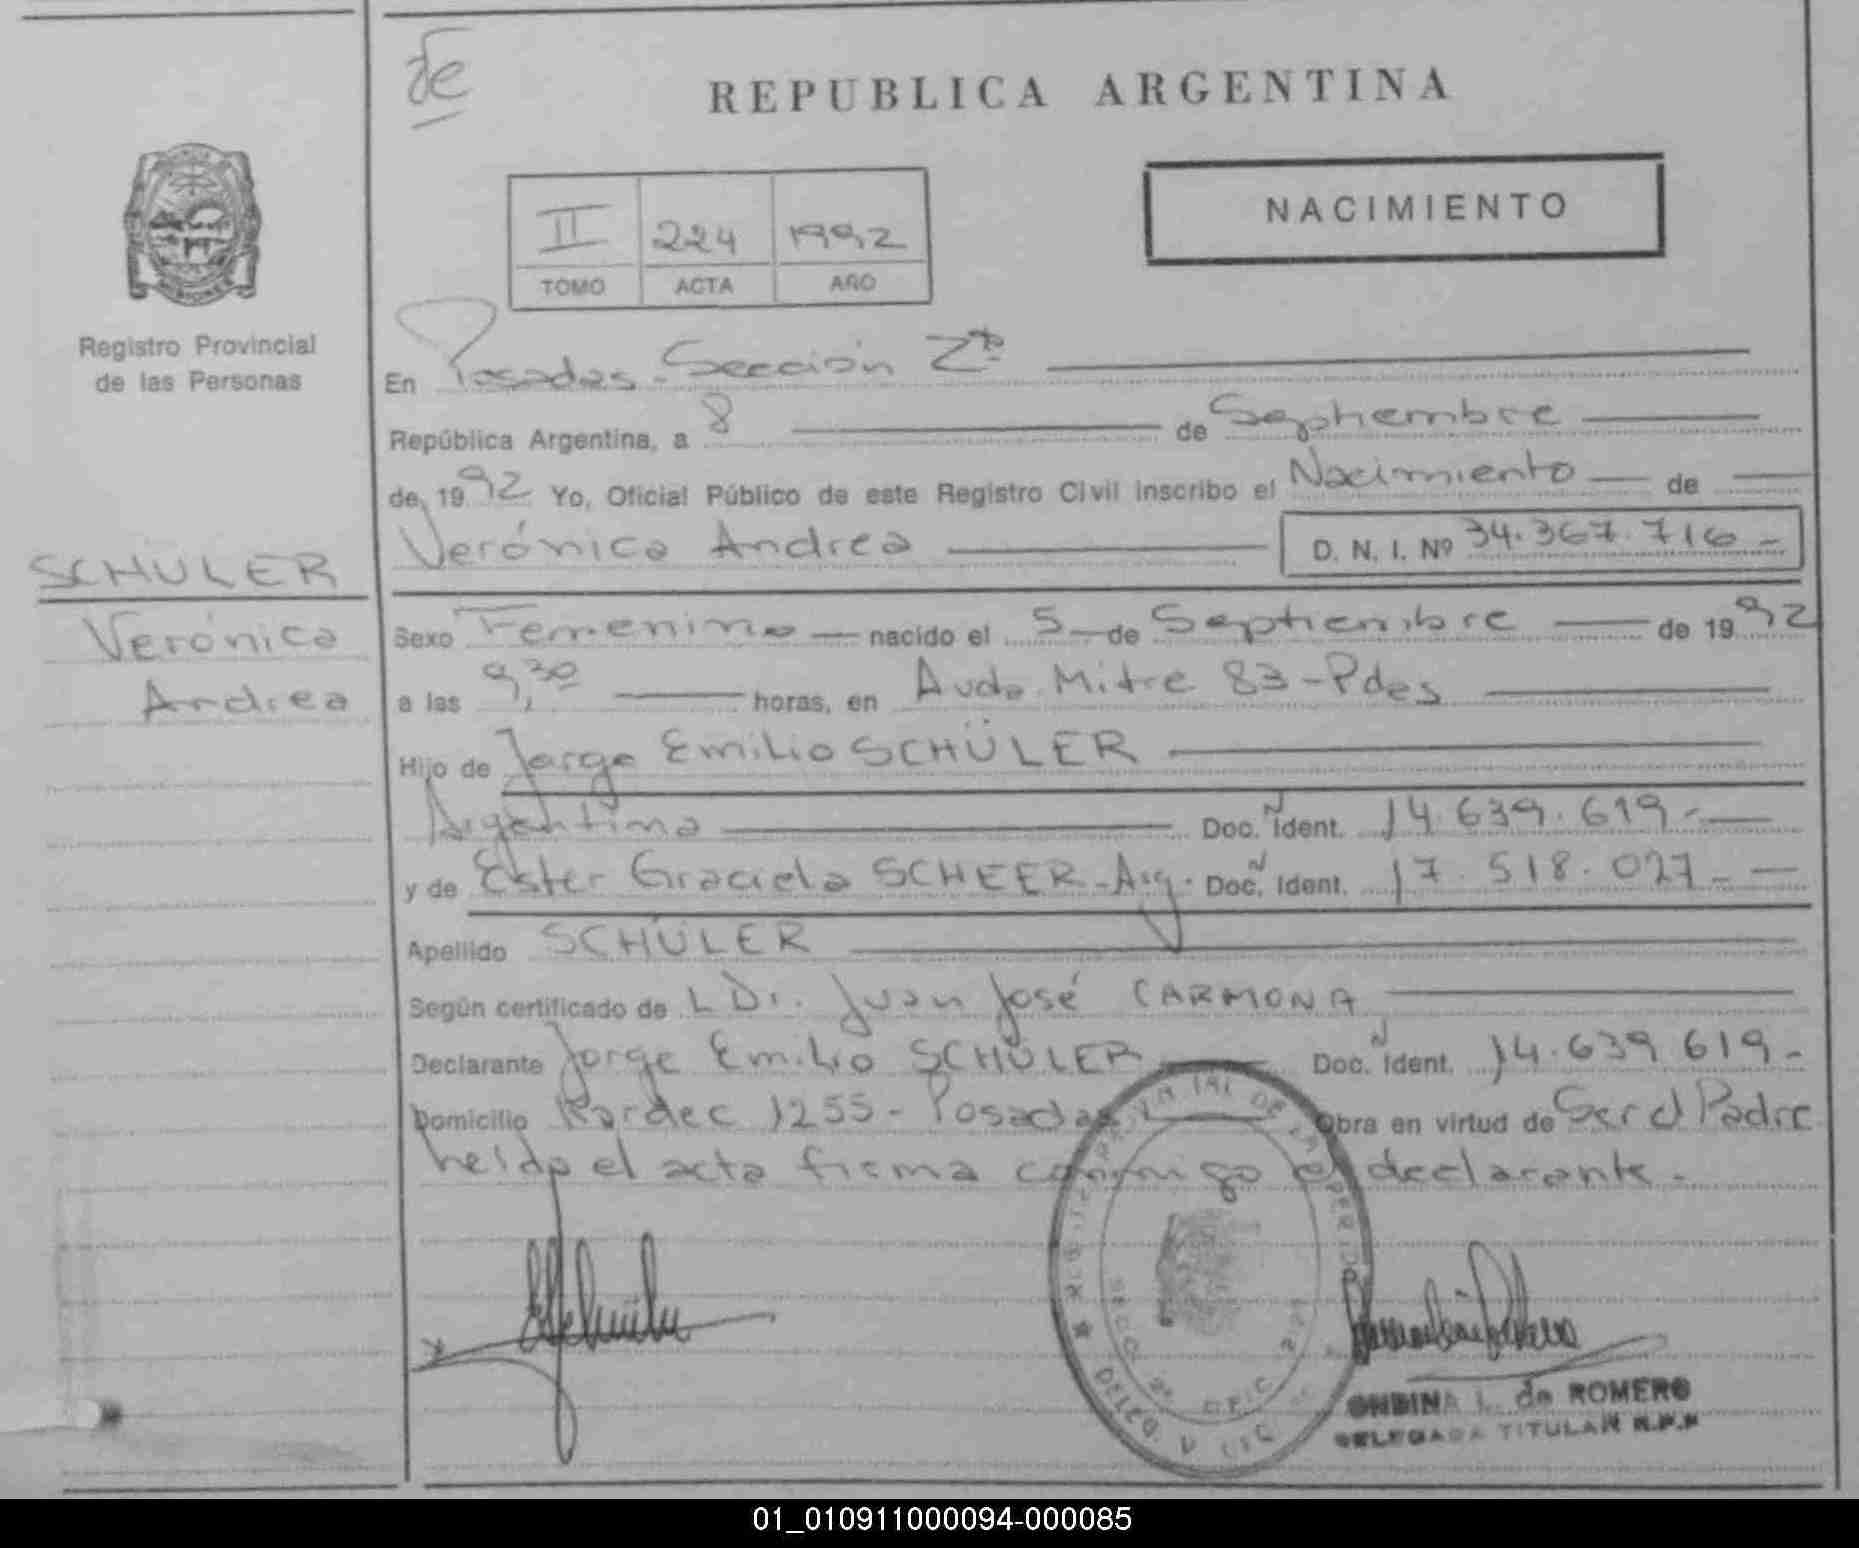 de
REPUBLICA ARGENTINA
NACIMIENTO
II 224 1992
TOMO ACTA AÑO
MISIONES
Registro Provincial
de las Personas
SCHÜLER
Verónica
Andrea
En Posadas - Sección 2da
República Argentina, a 8 de Septiembre
de, 1992 Yo, Oficial Público de este Registro Civil inscribo el Nacimiento de
Verónica Andrea D. N. I. Nº 34.367.716 -
Sexo Femenino nacido el 5 de Septiembre de 1992
a las 9,30 horas, en Avda. Mitre 83 - Pdas
Hijo de Jorge Emilio SCHÜLER
Argentino Doc. Ident. 14.639.619 -
y de Ester Graciela SCHEER - Arg. Doc. Ident. 17.518.027 -
Apellido SCHÜLER
Según certificado de L Dr. Juan José CARMONA
Declarante Jorge Emilio SCHÜLER Doc. Ident. 14.639.619 -
Domicilio Kardec 1255 - Posadas Obra en virtud de Ser el Padre
heída el acta firma conmigo el declarante -
DE LAS PER
SECC. 2ª OFIC.
ONDINA L. de ROMERO
DELEGADA TITULAR R.P.P
01_010911000094-000085